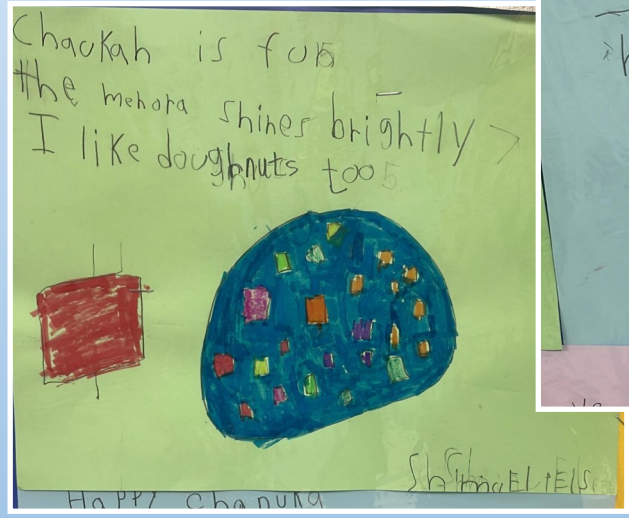 Chaukah is fun
the mehora shines brightly
I like doughnuts too
Happy Chanuka